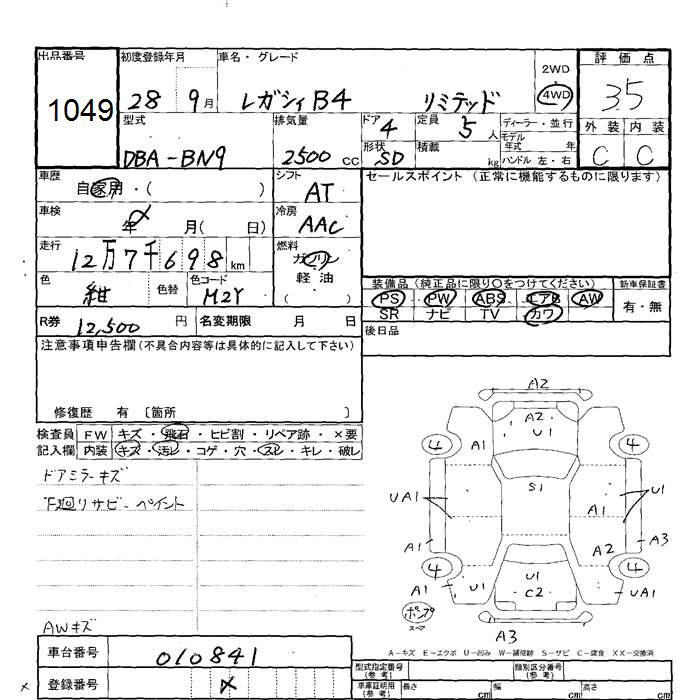 出品番号 初度登録年月 車名・グレード 評価点
1049 28 9月 レガシィB4 リミテッド 2WD 4WD 35
型式 排気量 ドア 4 定員 5人 ディーラー・並行 外装 内装
モデル年式 年
DBA-BN9 2500cc 形状 SD 積載 kg ハンドル 左・右 C C
車歴 シフト セールスポイント(正常に機能するものに限ります)
自家用・( ) AT
車検 冷房
年 月( 日) AAC
走行 燃料
12万7千698km ガソリン
色 色替 色コード 軽油
紺 M2Y ( )
装備品(純正品に限り○をつけてください) 新車保証書
PS PW ABS エアB AW 有・無
SR ナビ TV カワ
R券 12,500円 名変期限 月 日 後日品
注意事項申告欄(不具合内容等は具体的に記入して下さい)
修復歴 有 〔箇所 〕
検査員 FW キズ・飛石・ヒビ割・リペア跡・×要
記入欄 内装 キズ・汚レ・コゲ・穴・スレ・キレ・破レ
ドアミラーキズ
下廻りサビーペイント
AWキズ
A2
A2
U1
4 A1 A1 4
S1
UA1 U1
A1
A1 A2 A3
4 4
A1 U1 U1 UA1
C2
ポンプ
スペア
A3
A-キズ E-エクボ U-凹み W-補修跡 S-サビ C-腐食 XX-交換済
車台番号 010841
型式指定番号(参考) 類別区分番号(参考)
× 登録番号 ×
車庫証明用(参考) 長さ cm 幅 cm 高さ cm